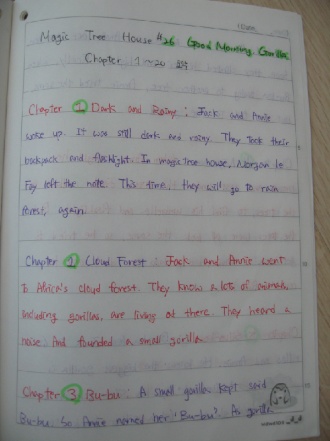 Magic Tree House #26 Good Morning, Gorillas
Chapter 1~20
Chapter 1 Dark and Rainy : Jack and Annie
woke up. It was still dark and rainy. They took their
backpack and flashlight. In magic tree house, Morgan le
Fay left the note. This time, they will go to rain
forest, again.
Chapter 2 Cloud Forest : Jack and Annie went
to Africa's cloud forest. They know a lots of animals,
including gorillas, are living at there. They heard a
noise and founded a small gorilla.
Chapter 3 Bu-bu : A small gorilla kept said
Bu-bu. So Annie named her 'Bu-bu'. As gorilla